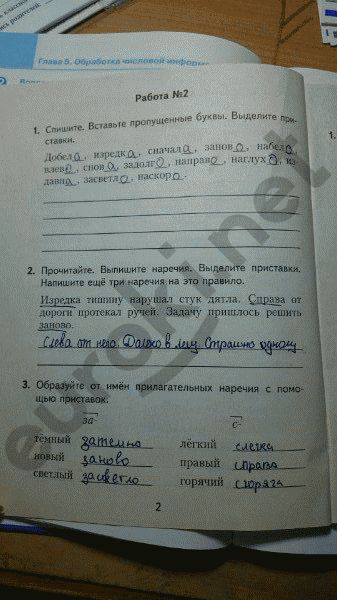 Глава 5. Обработка числовой информ
Работа №2
1. Спишите. Вставьте пропущенные буквы. Выделите при-
ставки.
Добела, изредка, сначала, заново, набело
влево, снова, задолго, направо, наглухо, из-
давна, засветло, наскоро.
2. Прочитайте. Выпишите наречия. Выделите приставки.
Напишите ещё три наречия на это правило.
Изредка тишину нарушал стук дятла. Справа от
дороги протекал ручей. Задачу пришлось решить
заново.
Слева от него. Далеко в лесу. Страшно одному
3. Образуйте от имён прилагательных наречия с помо-
щью приставок:
за- с-
тёмный затемно лёгкий слегка
новый заново правый справа
светлый засветло горячий сгоряча
2
euroki.net